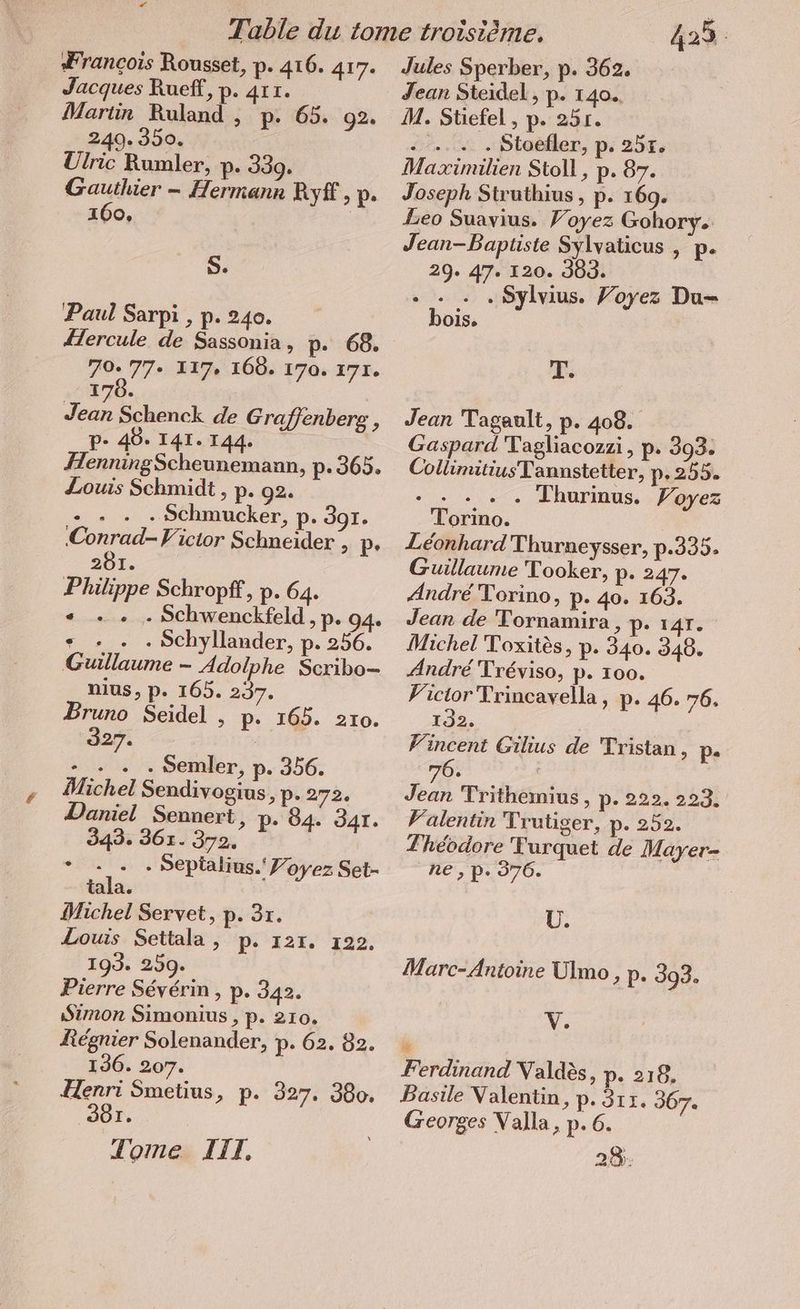 Table du tome troisième. 425.
François Rousset, p. 416. 417.
Jacques Rueff, p. 411.
Martin Ruland, p. 65. 92.
249. 350.
Ulric Rumler, p. 339.
Gauthier – Hermann Ryff, p.
160.
S.
Paul Sarpi, p. 240.
Hercule de Sassonia, p. 68.
70. 77. 117. 168. 170. 171.
178.
Jean Schenck de Graffenberg,
p. 48. 141. 144.
Henning Scheunemann, p. 365.
Louis Schmidt, p. 92.
. . . . Schmucker, p. 391.
Conrad-Victor Schneider, p.
281.
Philippe Schropff, p. 64.
. . . . Schwenckfeld, p. 94.
. . . . Schyllander, p. 256.
Guillaume – Adolphe Scribo-
nius, p. 165. 237.
Bruno Seidel, p. 165. 210.
327.
. . . . Semler, p. 356.
Michel Sendivogius, p. 272.
Daniel Sennert, p. 84. 341.
343. 361. 372.
. . . . Septalius. Voyez Set-
tala.
Michel Servet, p. 31.
Louis Settala, p. 121. 122.
193. 259.
Pierre Sévérin, p. 342.
Simon Simonius, p. 210.
Régnier Solenander, p. 62. 82.
136. 207.
Henri Smetius, p. 327. 380.
381.
Tome III.
Jules Sperber, p. 362.
Jean Steidel, p. 140.
M. Stiefel, p. 251.
. . . . Stoefler, p. 251.
Maximilien Stoll, p. 87.
Joseph Struthius, p. 169.
Leo Suavius. Voyez Gohory.
Jean-Baptiste Sylvaticus, p.
29. 47. 120. 383.
. . . . Sylvius. Voyez Du-
bois.
T.
Jean Tagault, p. 408.
Gaspard Tagliacozzi, p. 393.
Collimitius Tannstetter, p. 255.
. . . . . Thurinus. Voyez
Torino.
Léonhard Thurneysser, p. 335.
Guillaume Tooker, p. 247.
André Torino, p. 40. 163.
Jean de Tornamira, p. 141.
Michel Toxitès, p. 340. 348.
André Tréviso, p. 100.
Victor Trincavella, p. 46. 76.
132.
Vincent Gilius de Tristan, p.
76.
Jean Trithemius, p. 222. 223.
Valentin Trutiger, p. 252.
Théodore Turquet de Mayer-
ne, p. 376.
U.
Marc-Antoine Ulmo, p. 393.
V.
Ferdinand Valdès, p. 218.
Basile Valentin, p. 311. 367.
Georges Valla, p. 6.
28.